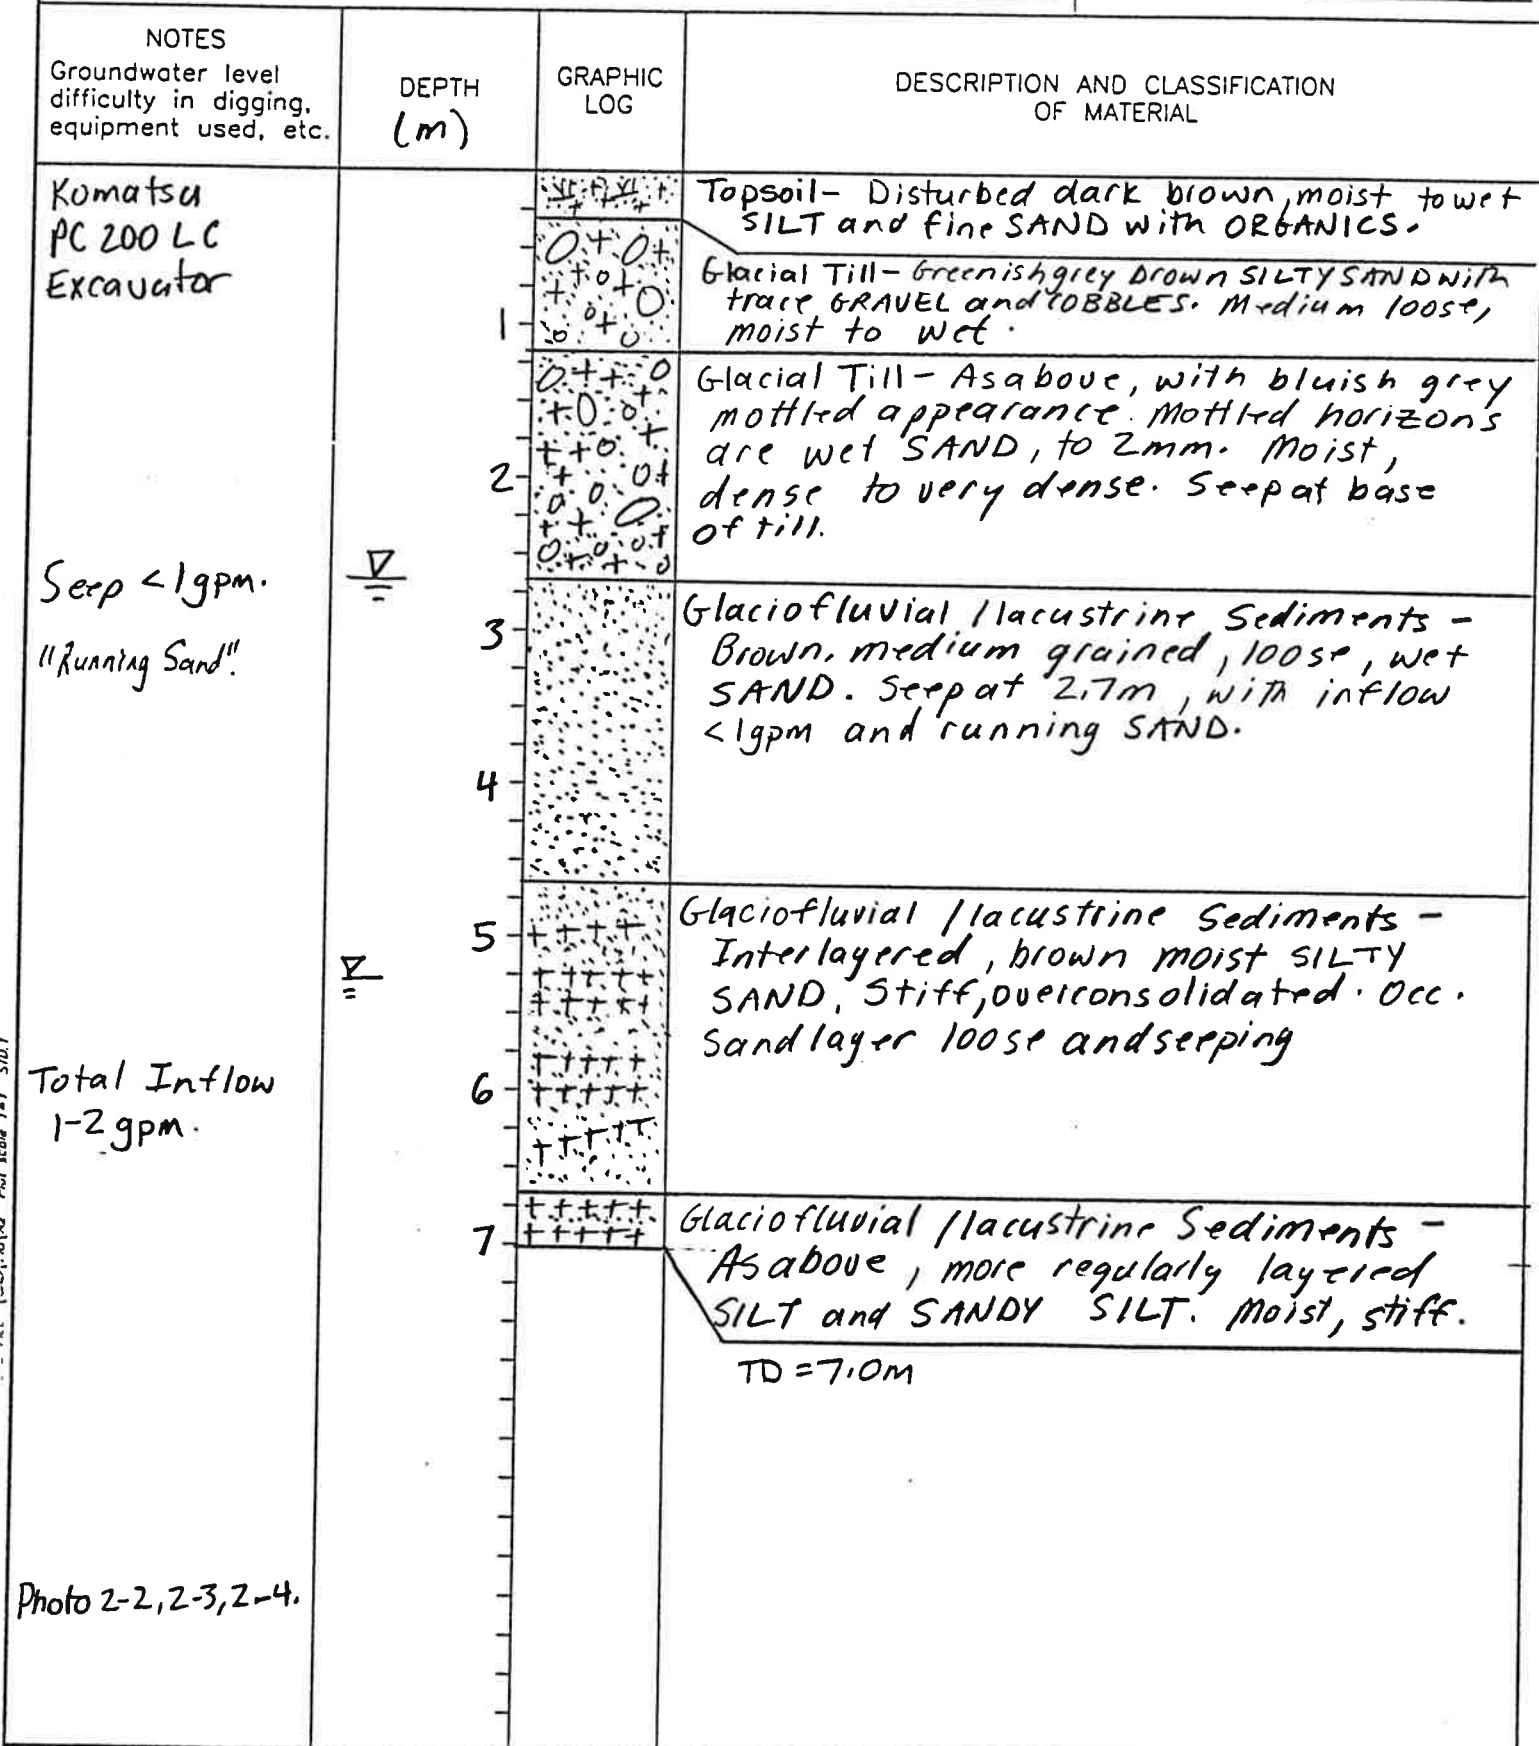 NOTES
Groundwater level
difficulty in digging,
equipment used, etc.
DEPTH
(m)
GRAPHIC
LOG
DESCRIPTION AND CLASSIFICATION
OF MATERIAL
Komatsu
PC 200 LC
Excavator
Topsoil- Disturbed dark brown, moist to wet
SILT and fine SAND with ORGANICS.
Glacial Till- Greenish grey brown SILTY SAND with
trace GRAVEL and COBBLES. Medium loose,
moist to wet.
1
Glacial Till- As above, with bluish grey
mottled appearance. Mottled horizons
are wet SAND, to 2mm. Moist,
dense to very dense. Seep at base
of till.
2
Seep <1gpm.
"Running Sand".
3
Glaciofluvial /lacustrine Sediments -
Brown, medium grained, loose, wet
SAND. Seep at 2.7m, with inflow
<1gpm and running SAND.
4
5
Glaciofluvial /lacustrine Sediments -
Interlayered, brown moist SILTY
SAND, Stiff, overconsolidated. Occ.
Sand layer loose and seeping
Total Inflow
1-2 gpm.
6
7
Glaciofluvial /lacustrine Sediments -
As above, more regularly layered
SILT and SANDY SILT. Moist, stiff.
TD = 7.0m
Photo 2-2, 2-3, 2-4.